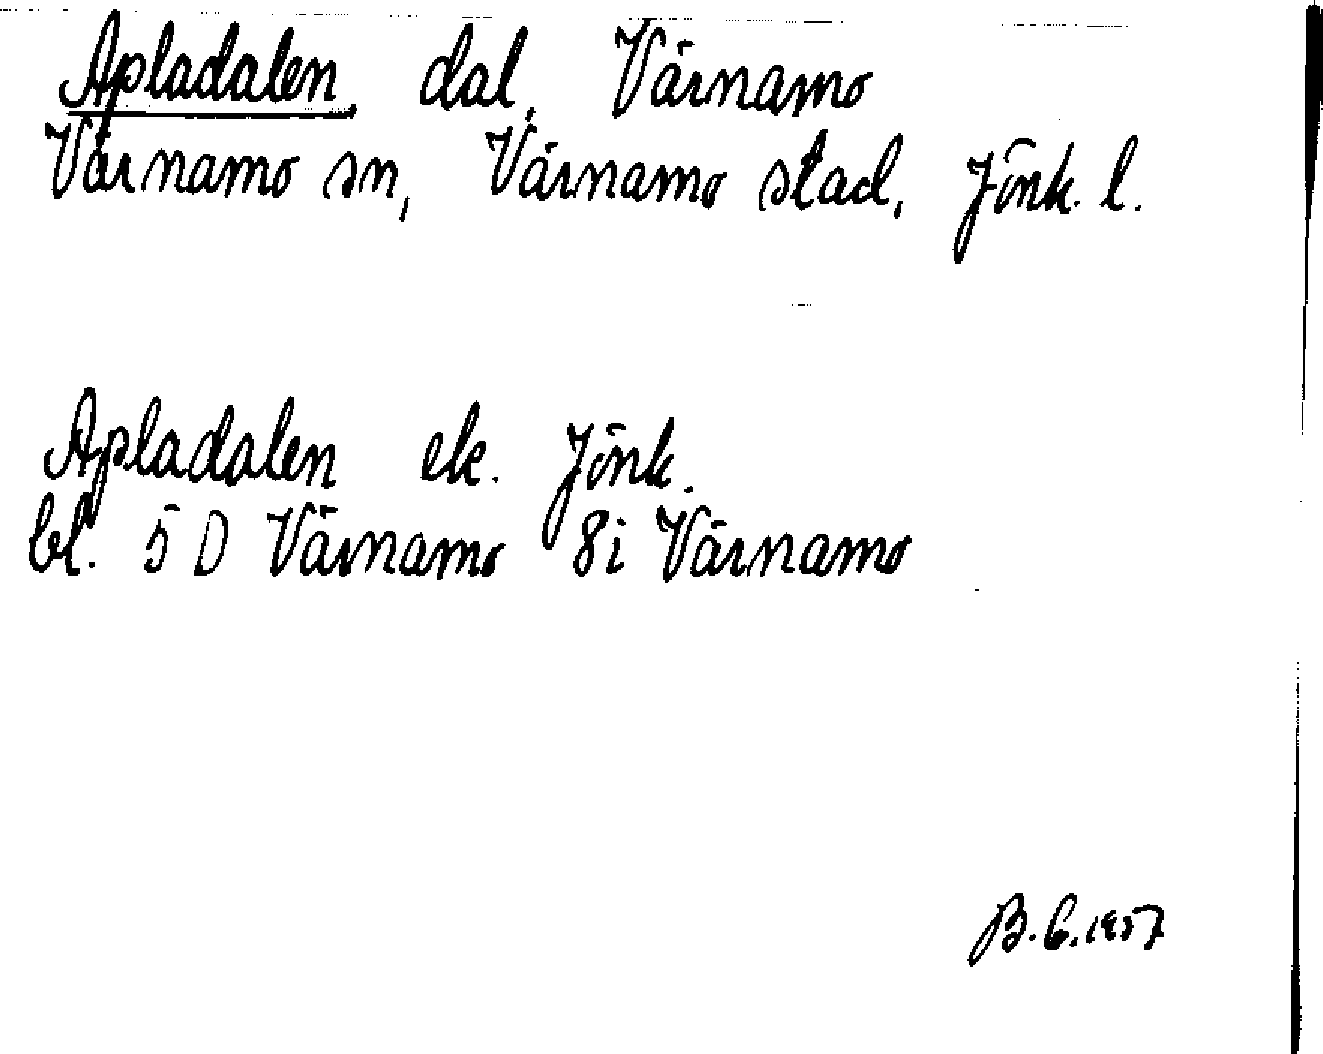 Apladalen, dal, Värnamo
Värnamo sn, Värnamo stad, Jönk. l.
Apladalen ek. Jönk.
bl. 5 D Värnamo 8i Värnamo
B.G. 1957